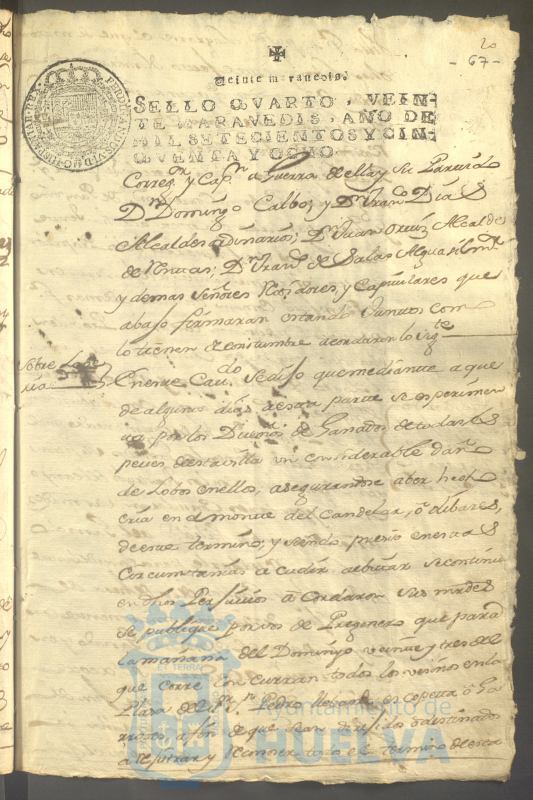 20
- 67 -
Veinte maravedis.
SELLO QVARTO, VEIN-
TE MARAVEDIS, AÑO DE
MIL SETECIENTOS Y CIN-
QVENTA Y OCHO
Correg.r y Cap.n a Guerra de ella y su Partido
Dn Domingo Calbo; y Dn Fran.co Díaz
Alcaldes ordinarios; Dn Juan Alcalde
de Dn Fran.co de Salas Alguacil m.or
y demas Señores Rexidores, y Capitulares que
abajo firmaran estando Juntos como
lo tienen de costumbre acordaron lo sig.te
Sobre Lobe
ria
En este Cav.do Se dijo que mediante a que
de algunos dias a esta parte se esperimen
ta por los Dueños de Ganados de todas es
pecies de esta villa un considerable daño
de Lobos en ellos, asegurandose aber hecho
cria en el monte del Candelar, o
de este termino; y siendo preciso en estas
Circumstancias acudir a ebitar se continúe
en dhos Perjuicios acordaron Sus mrdes
se publique por vos de Pregonero que para
la mañana del Domingo veinte y tres del
que corre concurran todos los vecinos en la
Plaza del S.r S.n Pedro escopeta o
a fin de que sean destinados
a rejistrar y reconocer todo el termino de esta
Ayuntamiento de
HUELVA